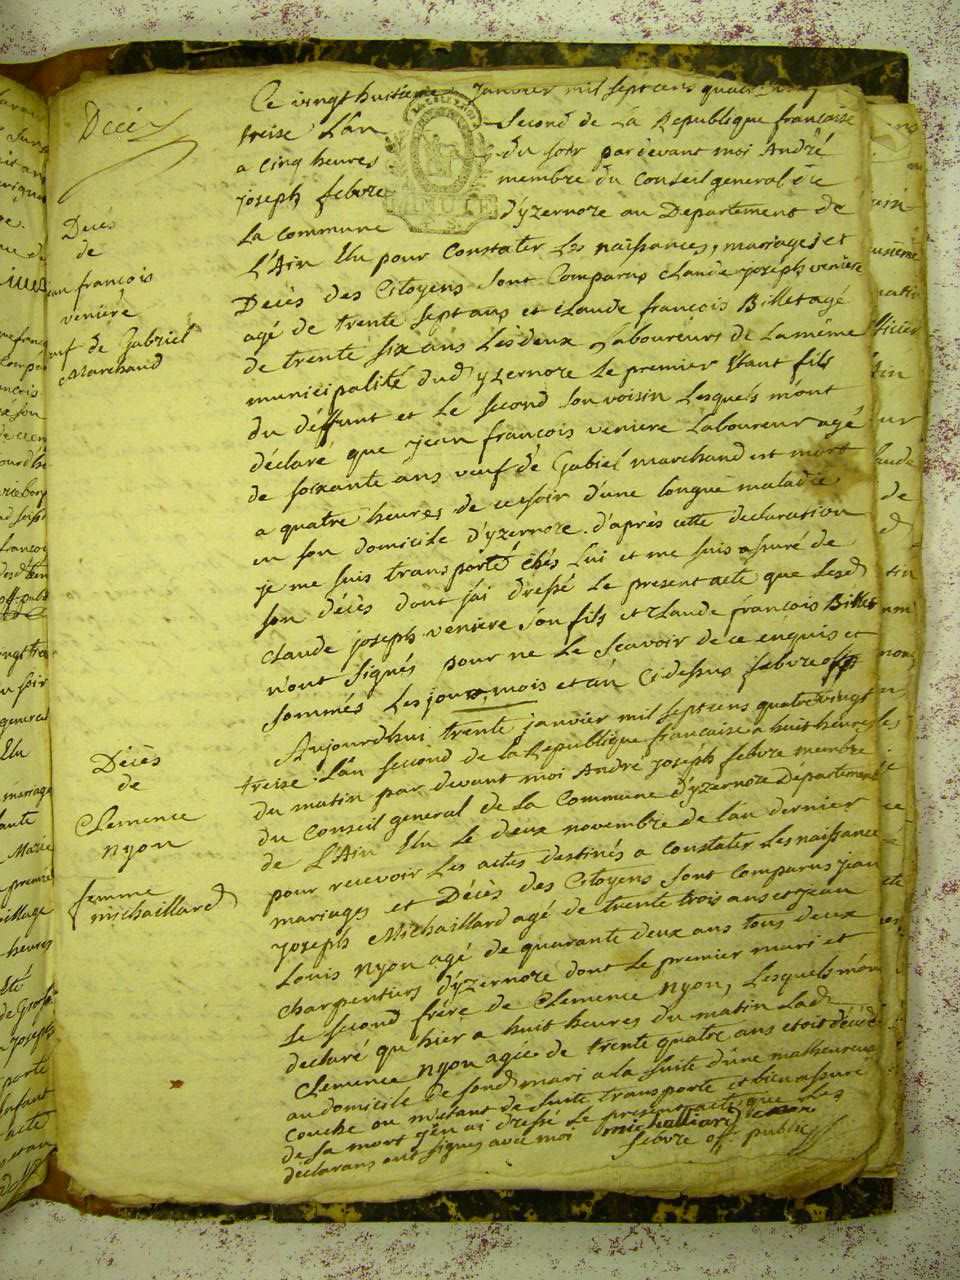 Décès
Ce vingt huitieme Janvier mil sept cens quatre vingt
treise L'an Second de La Republique francaise
a cinq heures du soir pardevant moi André
joseph febvre membre du Conseil general de
La commune d'yzernore au Departement de
L'Ain Elu pour constater Les naissances, mariages et
Décès des Citoyens sont Comparus Claude joseph veniere
agé de trente sept ans et claude françois Billet agé
de trente six ans Les deux Laboureurs de La même
municipalité dud yzernore Le premier Etant fils
du deffunt et Le second Son voisin Lesquels m'ont
déclaré que jean françois veniere Laboureur agé
de soixante ans veuf de Gabriel marchand est mort
a quatre heures de ce soir d'une longue maladie
en son domicile d'yzernore. d'après cette declaration
je me suis transporté chés Lui et me suis assuré de
son décès dont j'ai dressé Le present acte que Lesd
Claude joseph veniere Son fils et Claude françois Billet
n'ont signés pour ne Le Scavoir de ce enquis et
sommés Les jour, mois et an Cidessus febvre off p
Decès
de
jean françois
veniere
veuf de Gabriel
Marchand
Aujourdhui trente janvier mil sept cens quatre vingt
treise L'an second de la Republique francaise a huit heures
du matin par devant moi André joseph febvre membre
du Conseil general de La Commune d'yzernore Département
de L'Ain Elu Le deux novembre de L'an dernier
pour recevoir Les actes destinés a constater Les naissance
mariages et Décès des Citoyens sont comparus jean
joseph Michaillard agé de trente trois ans et jean
Louis nyon agé de quarante deux ans tous deux
charpentiers d'yzernore dont Le premier mari et
Le second frère de Clemence nyon, Lesquels m'on
declaré qu'hier a huit heures du matin Lad
Clemence nyon agée de trente quatre ans etoit décédé
au domicile de sond mari a la suite d'une malheureuse
couche ou m'etant de suite transporté et bien assuré
de sa mort j'en ai dressé Le present acte que Les
déclarans ont signés avec moi michaillard nyon
febvre off public
Décès
de
Clemence
nyon
femme
michaillard